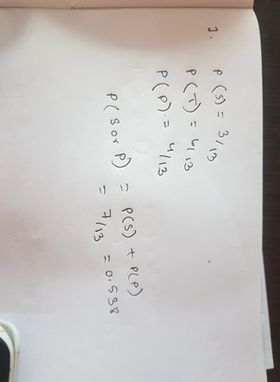 1. P(S) = 3/13
P(T) = 6/13
P(P) = 4/13
P(S or P) = P(S) + P(P)
= 7/13 = 0.538